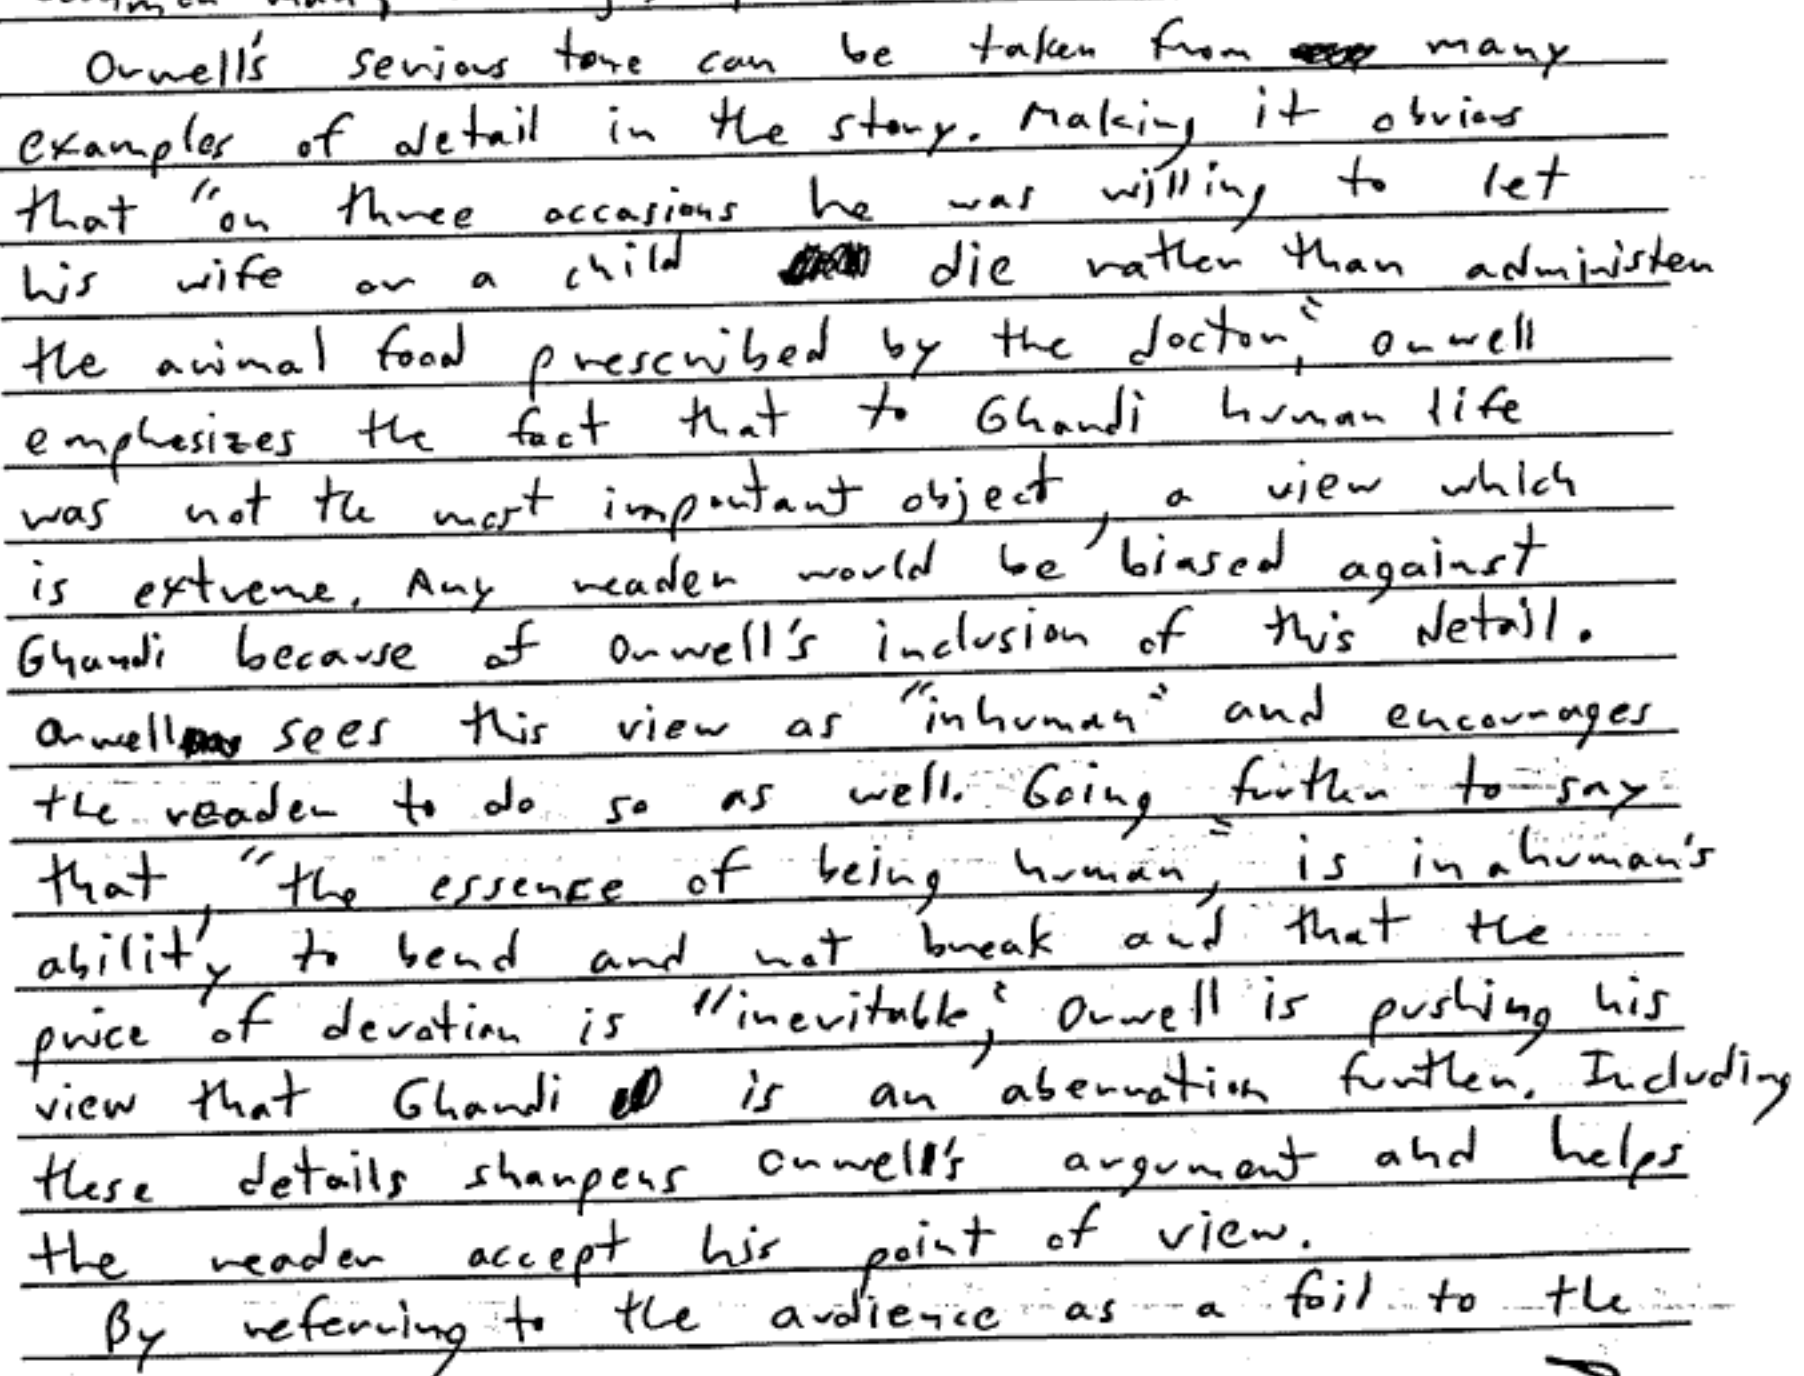 Orwell's serious tone can be taken from many
examples of detail in the story. Making it obvious
that "on three occasions he was willing to let
his wife or a child die rather than administer
the animal food prescribed by the doctor," Orwell
emphesizes the fact that to Ghandi human life
was not the most important object, a view which
is extreme. Any reader would be biased against
Ghandi because of Orwell's inclusion of this detail.
Orwell sees this view as "inhuman" and encourages
the reader to do so as well. Going further to say
that, "the essence of being human," is in a human's
ability to bend and not break and that the
price of devotion is "inevitable," Orwell is pushing his
view that Ghandi is an aberration further. Including
these details sharpens Orwell's argument and helps
the reader accept his point of view.
By referring to the audience as a foil to the